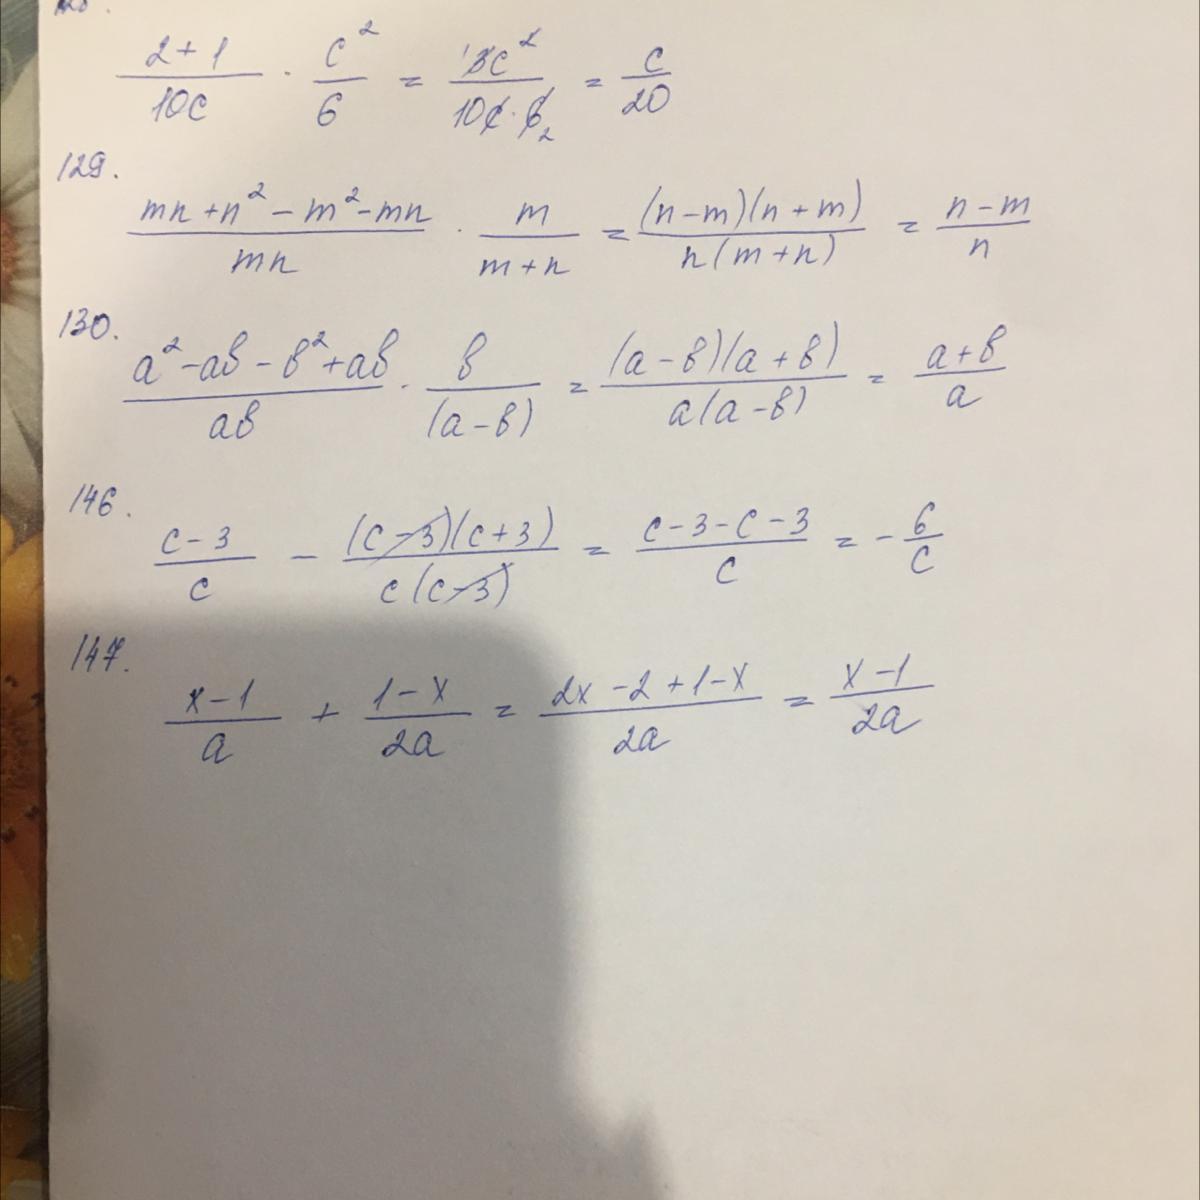 2+1/10c · c²/6 = ¹3c²/10c·6₂ = c/20
129.
mn+n²-m²-mn/mn · m/m+n = (n-m)(n+m)/n(m+n) = n-m/n
130.
a²-ab-b²+ab/ab · b/(a-b) = (a-b)(a+b)/a(a-b) = a+b/a
146.
c-3/c - (c-3)(c+3)/c(c-3) = c-3-c-3/c = -6/c
147.
x-1/a + 1-x/2a = 2x-2+1-x/2a = x-1/2a